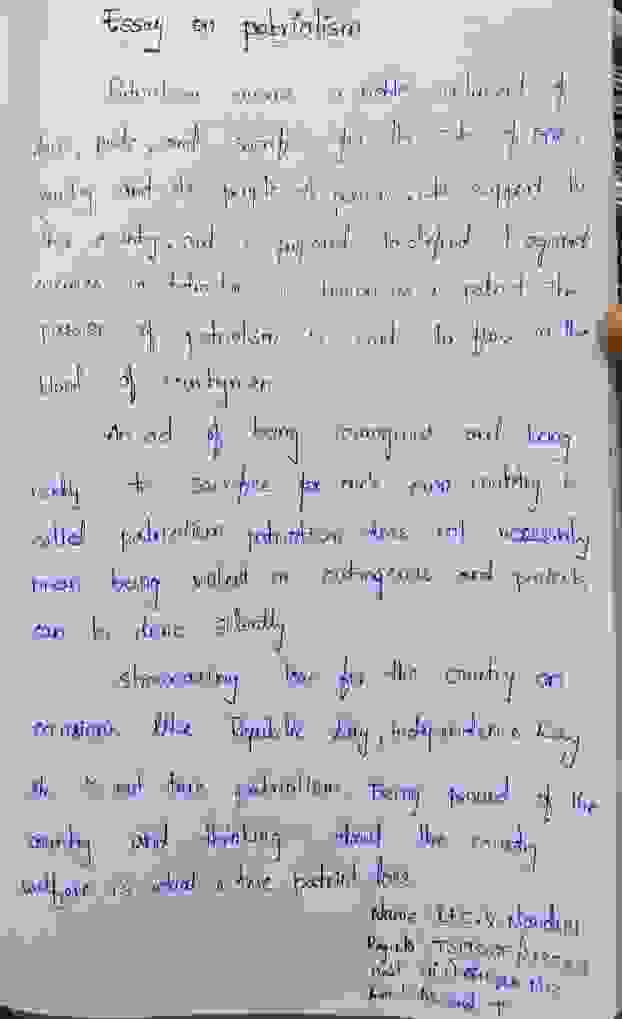 Essay on patriotism
Patriotism means a noble sentiment of
love, pride, and sacrifice for the sake of one's
country and its people A person who support to
his country, and is prepared to defend it against
enemies or as a patriot The
passion of patriotism is said to flow in the
blood of countrymen
An act of being courageous and being
ready to sacrifice for one's own country is
called patriotism patriotism does not necessarily
mean being violent or outrageous and protests
can be done silently
showcasing love for the country on
occasions like Republic day, independence Day
etc is not true patriotism. Being proud of the
country and thinking about the country
welfare is what a true patriot does
Name